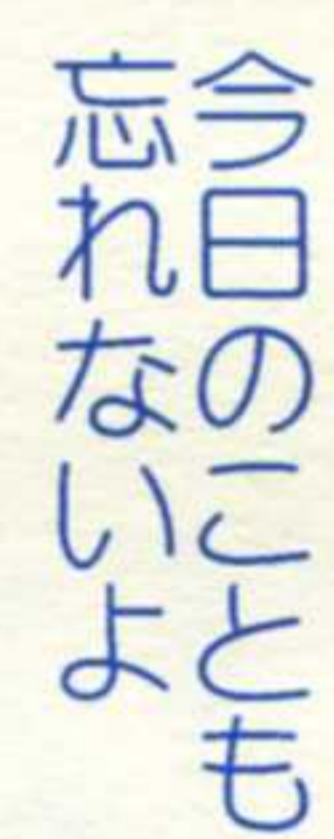 今日のことも
忘れないよ